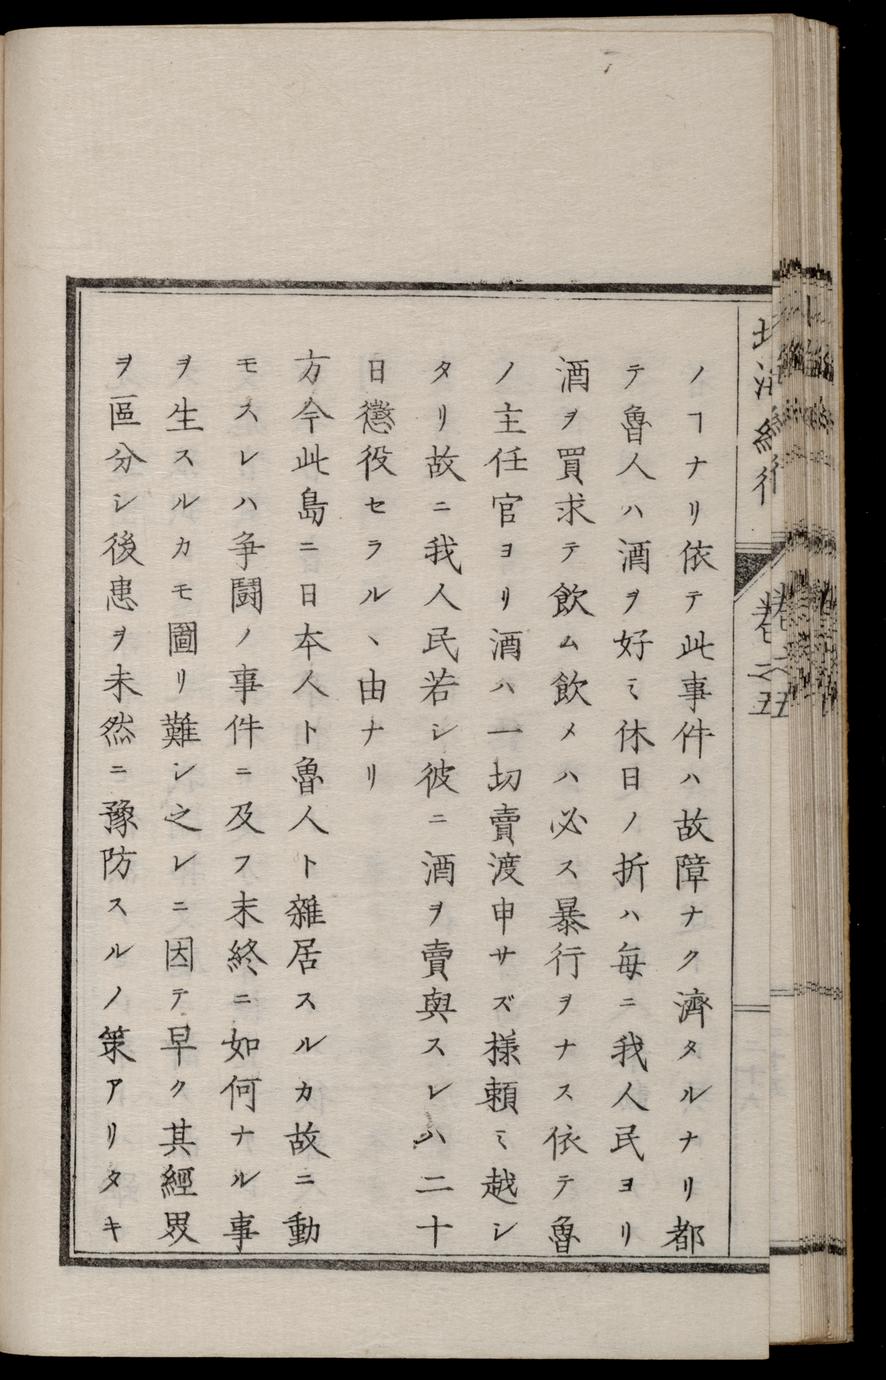 ノヿナリ依テ此事件ハ故障ナク濟タルナリ都
テ魯人ハ酒ヲ好ミ休日ノ折ハ毎ニ我人民ヨリ
酒ヲ買求テ飲ム飲メハ必ス暴行ヲナス依テ魯
ノ主任官ヨリ酒ハ一切賣渡申サズ様頼ミ越シ
タリ故ニ我人民若シ彼ニ酒ヲ賣與スレハ二十
日懲役セラルヽ由ナリ
方今此島ニ日本人ト魯人ト雜居スルカ故ニ動
モスレハ争鬪ノ事件ニ及フ末終ニ如何ナル事
ヲ生スルカモ圖リ難シ之レニ因テ早ク其經界
ヲ區分シ後患ヲ未然ニ豫防スルノ策アリタキ
卷之五